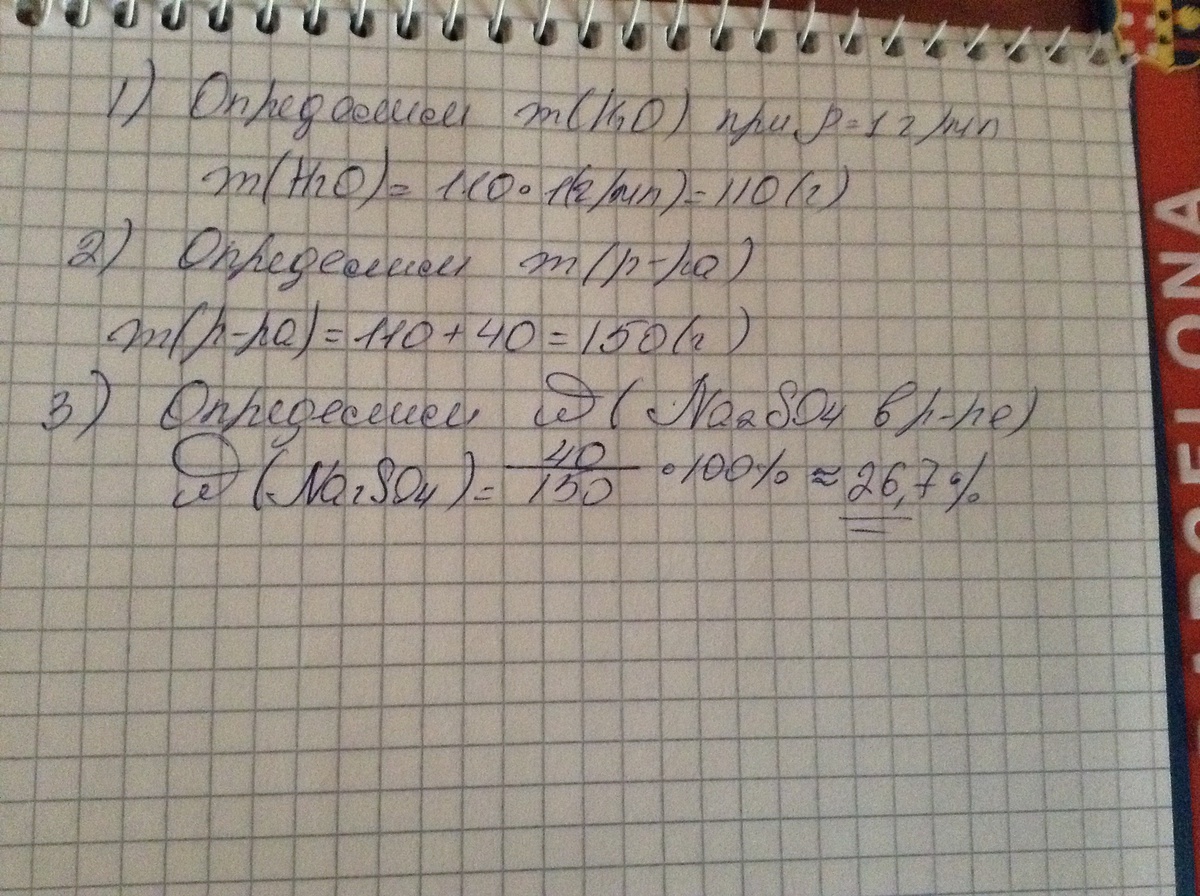 1) Определим m(H2O) при ρ=1 г/мл
m(H2O)= 110•1(г/мл)=110(г)
2) Определим m(р-ра)
m(р-ра)=110+40=150(г)
3) Определим ω(Na2SO4 в р-ре)
ω(Na2SO4)= 40/150 •100% ≈ 26,7%
ELONA